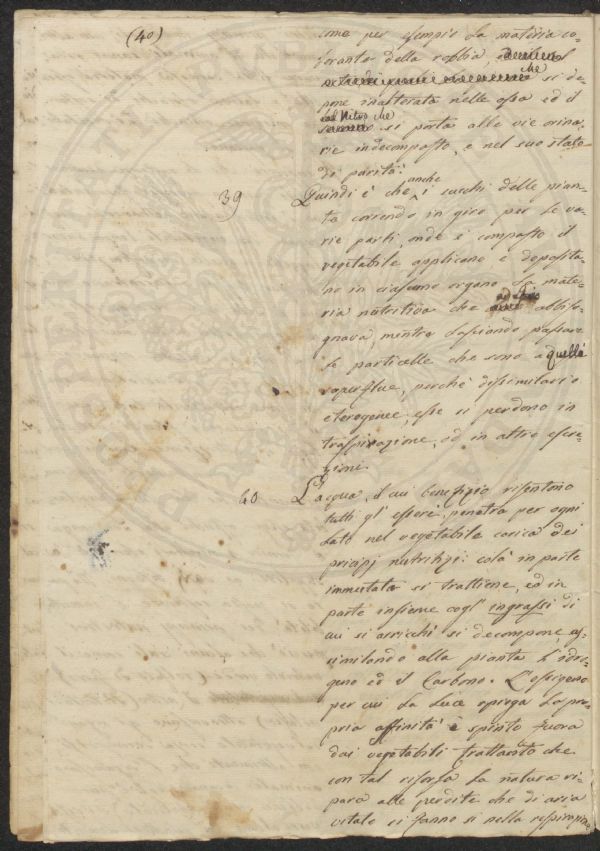 (40)
come per esempio la materia co=
lorante della robbia,
che si de=
pone inalterata nelle ossa ed il
nel Nitro che
si porta alle vie orina=
rie indecomposto, e nel suo stato
di parità.
39 Quindi è che anche i succhi delle pian=
te correndo in giro per le va=
rie parti, onde è composto il
vegetabile applicano e deposita=
no in ciascuno organo la mate=
ria nutritiva che ad esso abbiso=
gnava, mentre lasciando passare
le particelle che sono a quello
superflue, perchè dissimilari o
eterogenee, esse si perdono in
traspirazione, od in altre escre=
zioni.
40 L'acqua, il cui benefizio risentono
tutti gl' esseri, penetra per ogni
lato nel vegetabile carica dei
principj nutritizj: colà in parte
immutata si trattiene, ed in
parte insieme cogl' ingrassi di
cui si arricchì si decompone, as=
similando alla pianta l'idro=
geno ed il Carbono. L'ossigeno
per cui la luce spiega la pro=
pria affinità è spinto fuora
dai vegetabili trattanto che
con tal risorsa la natura ri=
para alle perdite che di aria
vitale si fanno si nella respirazione